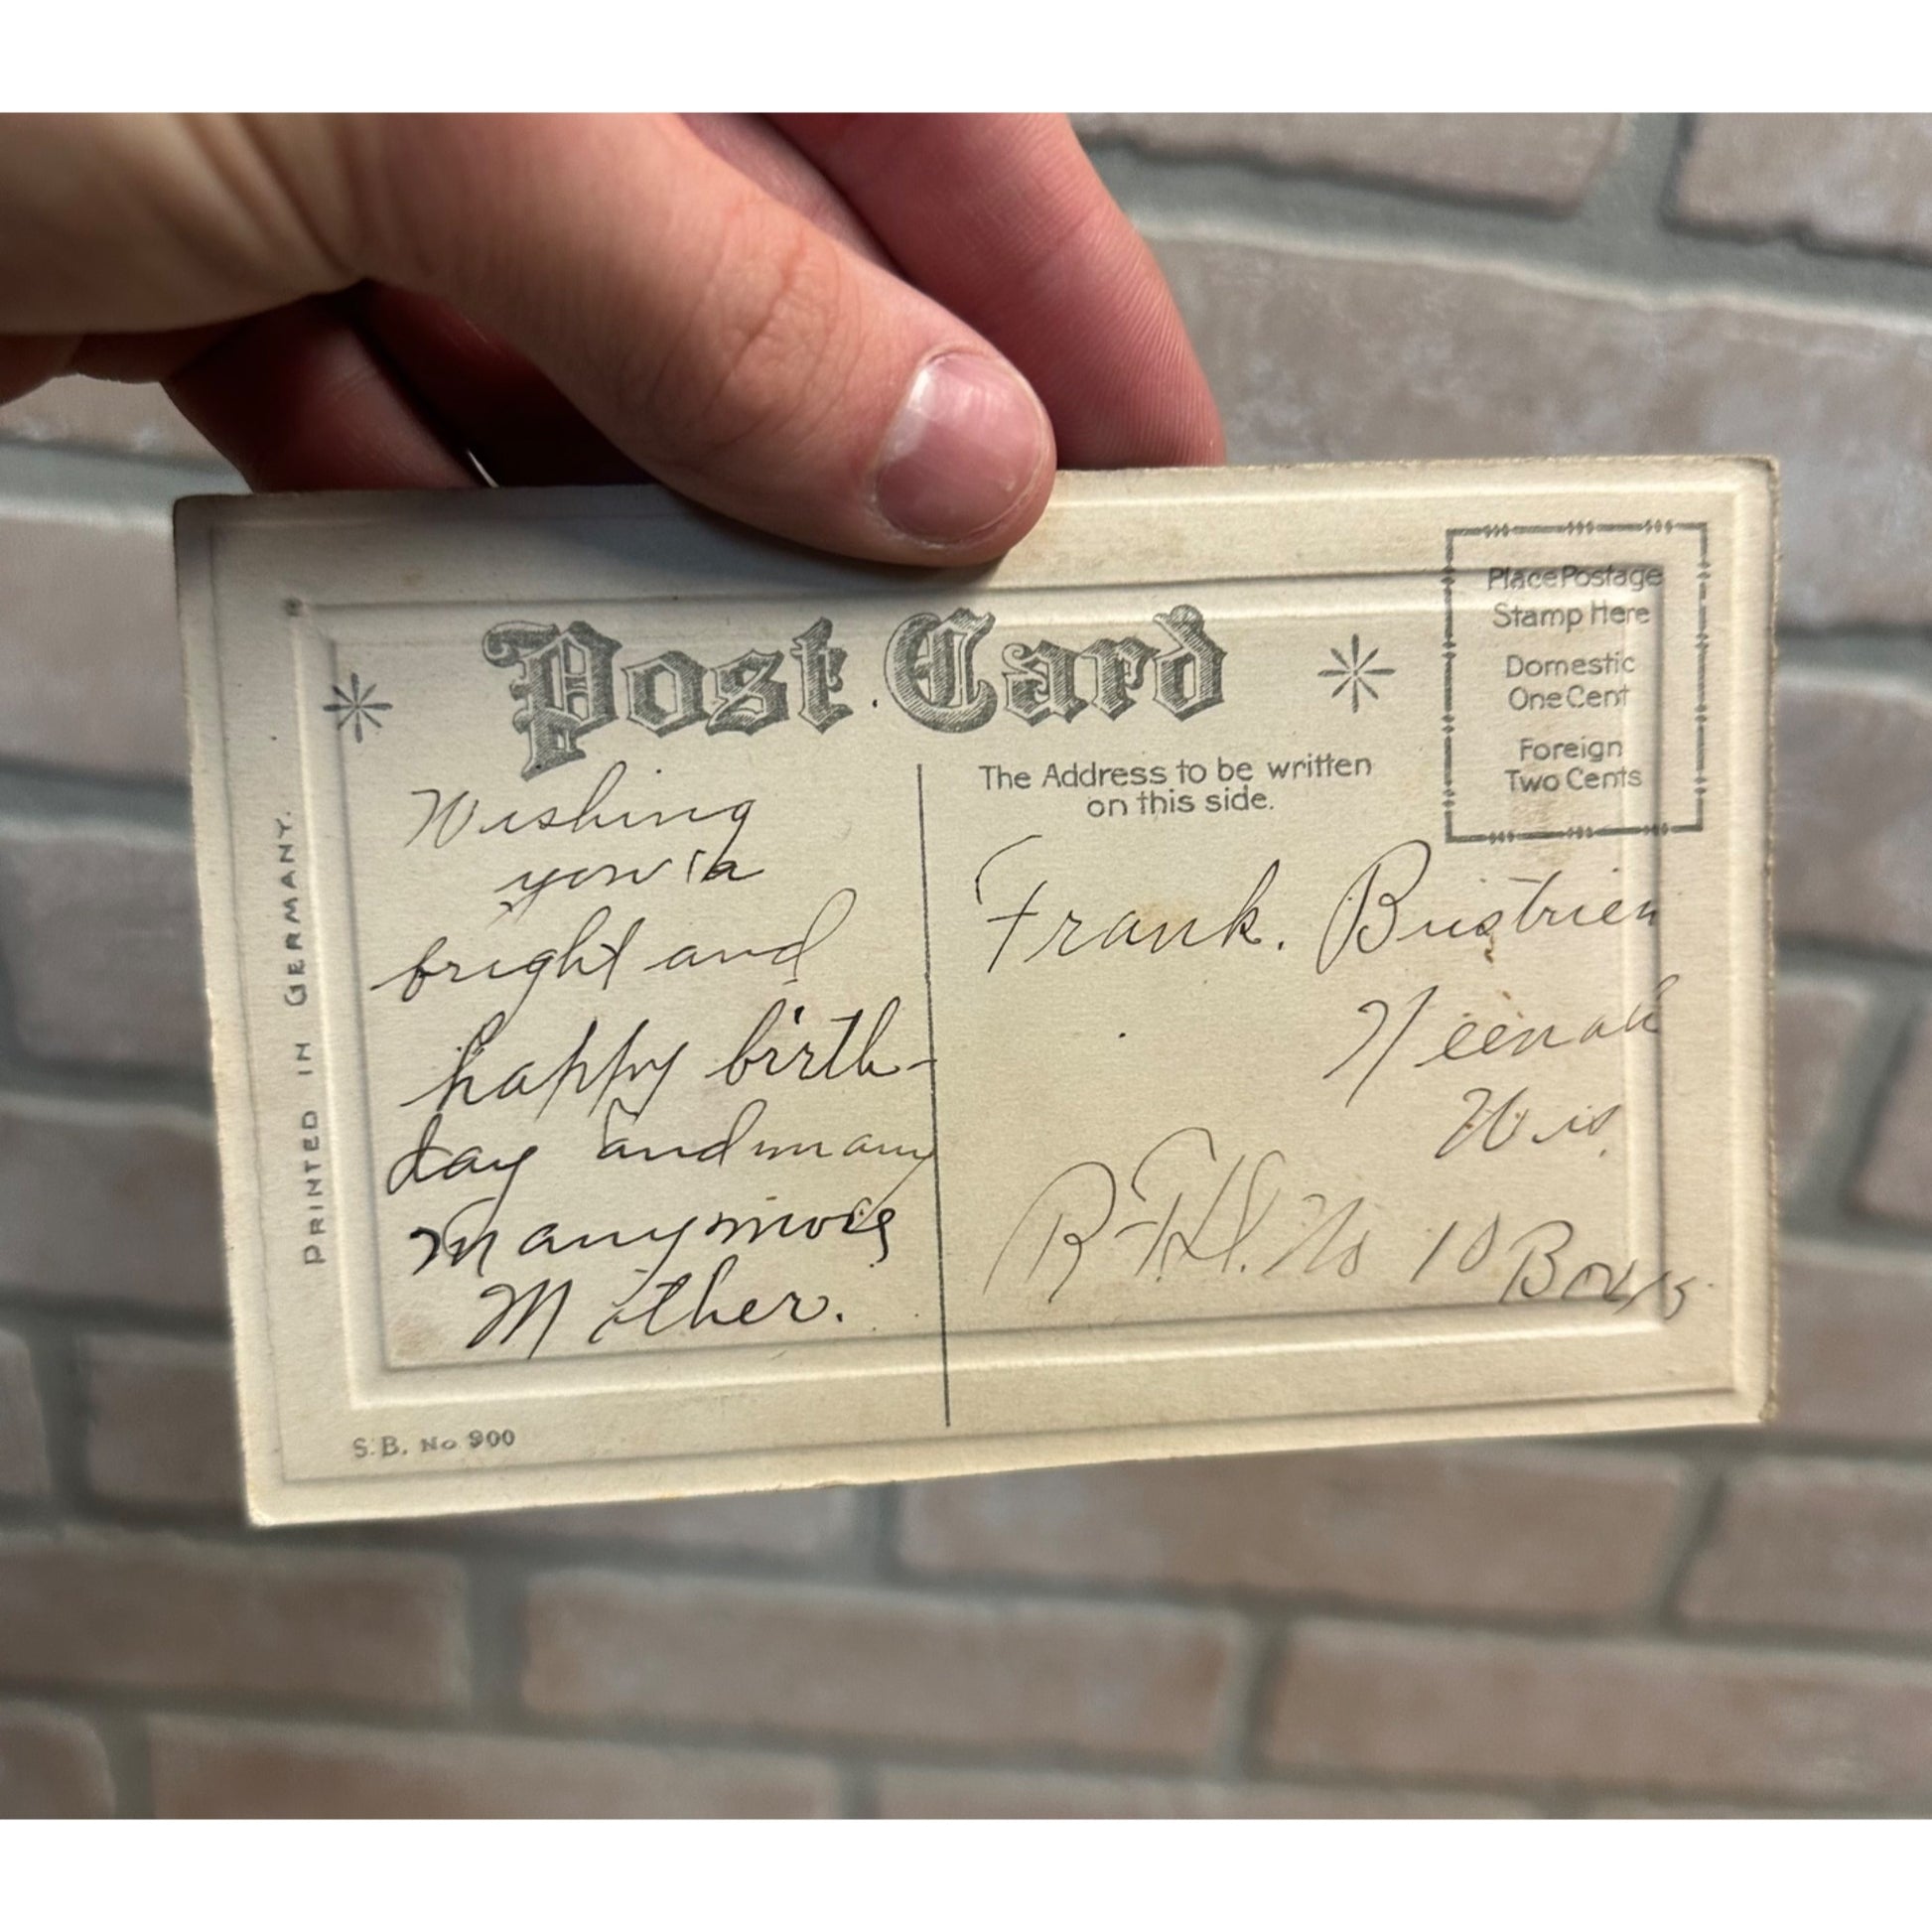 Post Card
Place Postage
Stamp Here
Domestic
One Cent
Foreign
Two Cents
The Address to be written
on this side.
PRINTED IN GERMANY.
Wishing
you a
bright and
happy birth-
day and many
many more
Mother.
Frank. Bustrien
Neenah
Wis.
R.F.D. No 10 Box
S.B. No 900